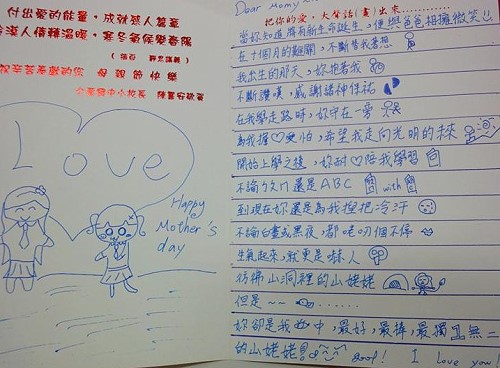 付出愛的能量,成就感人篇章
港人情釋溫暖,寒冬氣候變春陽
祝辛苦奉獻的你 母親節快樂
Love
Happy
Mother's
day
Dear Momy
把你的愛,大聲話(畫)出來
當妳知道擁有新生命誕生,便與爸爸相擁微笑!!
在十個月的難關,不斷替我著想
我出生的那天,妳抱著我
不斷讚嘆,感謝諸神保祐
在我學走路時,妳守在一旁
為我擔♡受怕,希望我走向光明的未來
開始上學之後,妳耐♡陪我學習
不論ㄅㄆㄇ還是ABC with
到現在妳還是為我捏把冷汗
不論白晝或黑夜,都嘮叨個不停
生氣起來,就更是嚇人
彷彿山洞裡的山姥姥
但是~~
妳卻是我心中,最好,最棒,最獨一無二
的山姥姥 good! I love you!